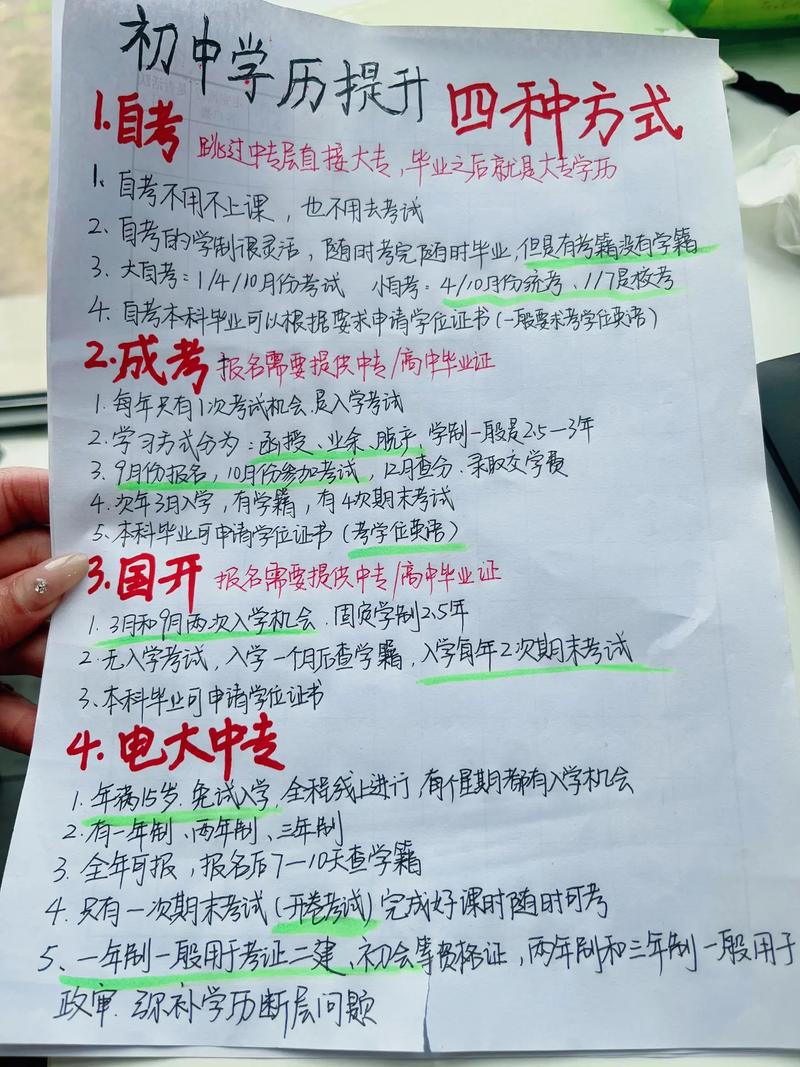 初中学历提升 四种方式
1.自考 跳过中专层直接大专,毕业之后就是大专学历
1、自考不用不上课,也不用去考试
2、自考的学制很灵活,随时考完随时毕业,但是有考籍没有学籍
3、大自考:1/4/10月份考试 小自考:4/10月份统考、1/7是校考
4、自考本科毕业可以根据要求申请学位证书(一般要求考学位英语)
2.成考 报名需要提供中专/高中毕业证
1.每年只有1次考试机会,是入学考试
2.学习方式分为:函授、业余、脱产,学制一般是2.5—3年
3.9月份报名,10月份参加考试,12月查分.录取交学费
4.次年3月入学,有学籍,有4次期末考试
5.本科毕业可申请学位证书(考学位英语)
3.国开 报名需要提供中专/高中毕业证
1.3月和9月两次入学机会.固定学制2.5年
2.无入学考试,入学一个月后查学籍,入学每年2次期末考试
3.本科毕业可申请学位证书
4.电大中专
1.年满15岁.免试入学,全程线上进行,每个星期都有入学机会
2.有一年制、两年制、三年制
3.全年可报,报名后7—10天查学籍
4.只有一次期末考试(开卷考试)完成好课时随时可考
5、一年制一般用于考证二建、初会等资格证,两年制和三年制一般用于
政审.弥补学历断层问题